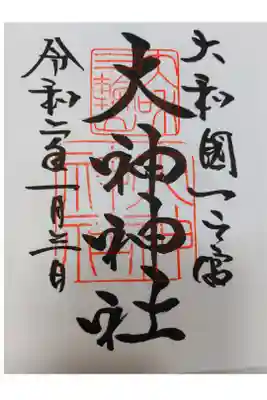 大和國一之宮
大神神社
令和二年一月三日